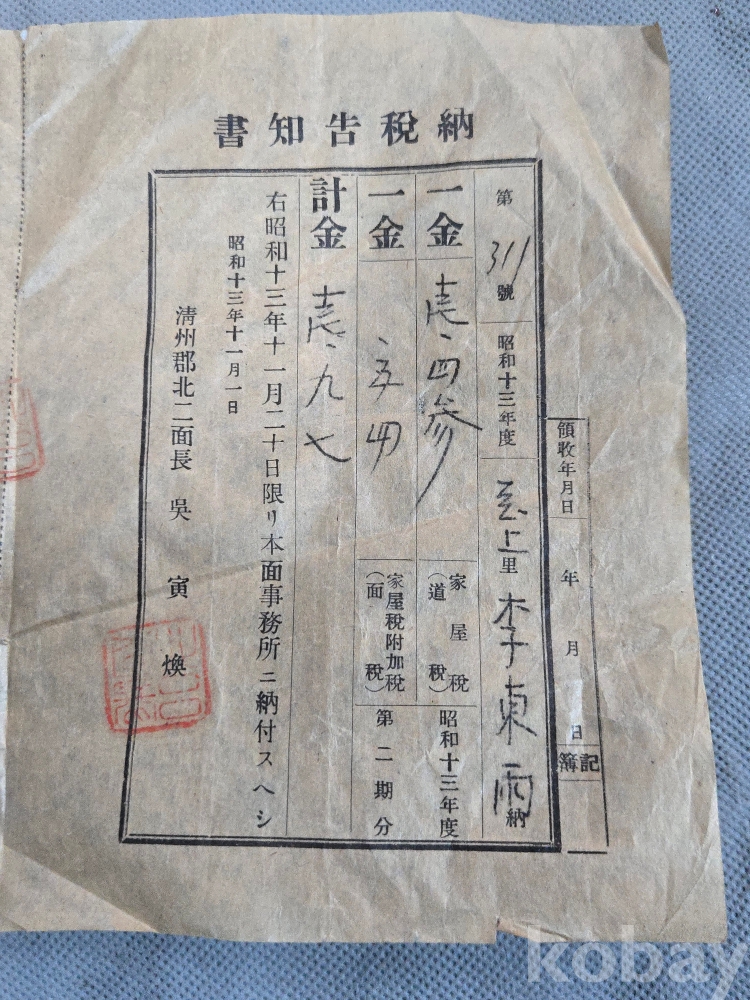 納稅告知書
領收年月日 年 月 日 記簿
第311號 昭和十三年度 上里 李東雨 納
一金 壱、四参 家屋稅(道稅) 昭和十三年度
一金 、五四 家屋稅附加稅(面稅) 第二期分
計金 壱、九七
右昭和十三年十一月二十日限リ本面事務所ニ納付スヘシ
昭和十三年十一月一日
淸州郡北二面長 吳寅煥
kobay